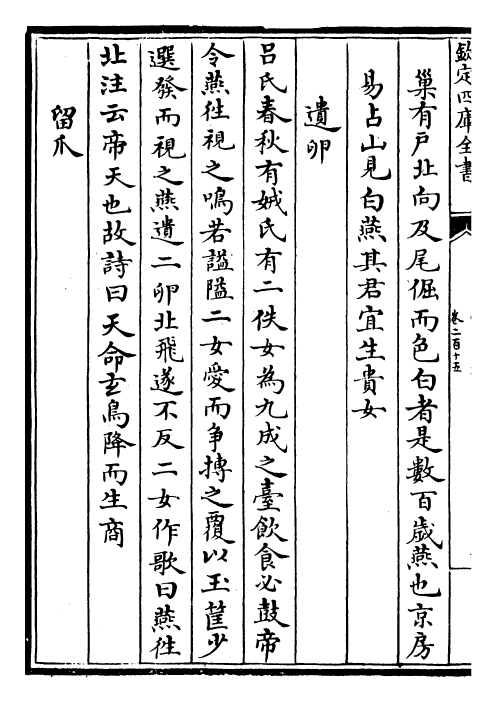 欽定四庫全書
卷二百十五
巢有戶北向及尾倔而色白者是數百歲燕也京房
易占山見白燕其君宜生貴女
遺卵
呂氏春秋有娀氏有二佚女為九成之臺飲食必鼓帝
令燕往視之鳴若謚隘二女愛而争摶之覆以玉筐少
選發而視之燕遺二卵北飛遂不反二女作歌曰燕往
北注云帝天也故詩曰天命玄鳥降而生商
留爪